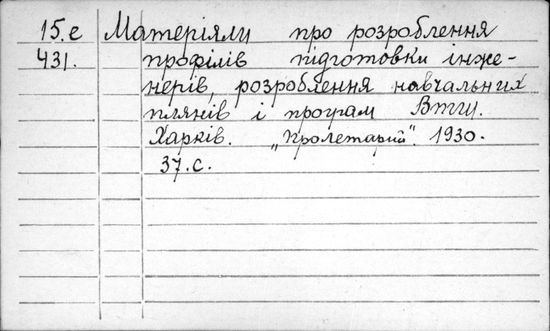 15.е Матеріяли про розроблення
431. профілів підготовки інже-
нерів, розроблення навчальних
плянів і програм ВТШ.
Харків. „Пролетарий". 1930.
37.с.